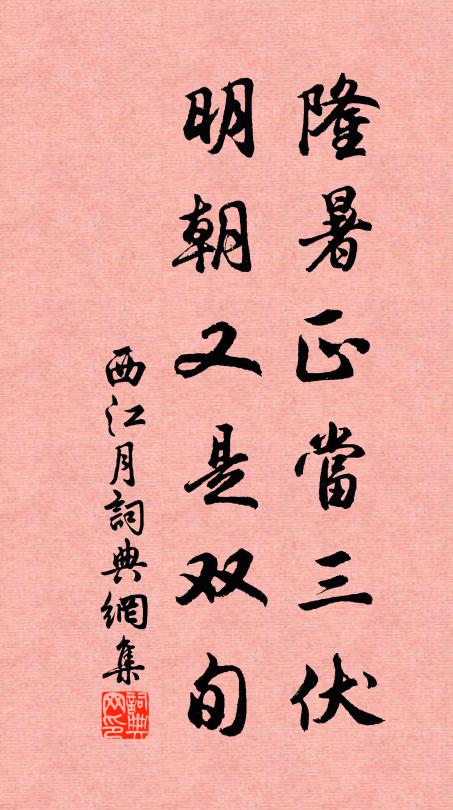 隆暑正當三伏
明朝又是双旬
西江月詞典網集
詞典网印